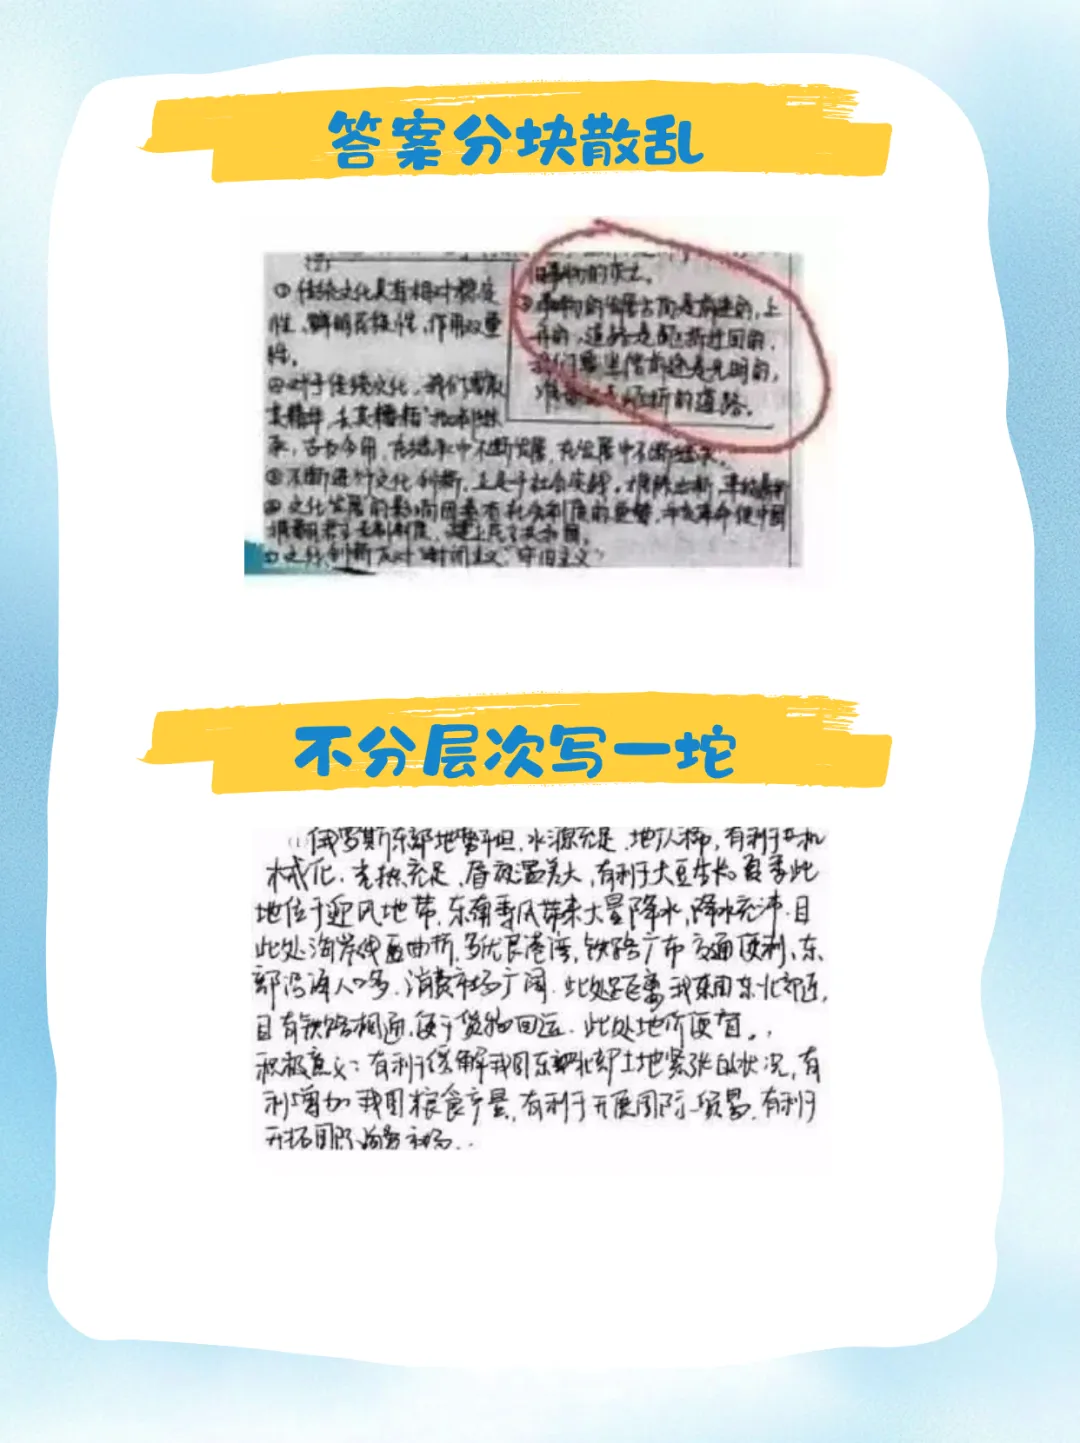 答案分块散乱
旧事物的灭亡。
①传统文化具有相对稳定
性、鲜明民族性，作用双重
性。
②对于传统文化，我们要取
其精华，去其糟粕，批判继
承，古为今用，在继承中不断发展，在发展中不断继承。
的发展方向是前进的，上
升的，道路是曲折迂回的，
我们要坚信前途是光明的，
准备走曲折的道路。
③不断进行文化创新，立足于社会实践，推陈出新
④文化发展的影响因素有社会制度的更替，
文化创新反对"封闭主义""守旧主义"
不分层次写一坨
(1)俄罗斯东部地势平坦，水源充足，地广人稀，有利于机
械化，光热充足，昼夜温差大，有利于大豆生长。夏季此
地位于迎风地带，东南季风带来大量降水，降水充沛。且
此处海岸线曲折，多优良港湾，铁路广布交通便利，东
部沿海人口多，消费市场广阔。此处距离我国东北部近，
且有铁路相通，便于货物回运。此处地价便宜。
积极意义：有利于缓解我国东北部土地紧张的状况，有
利增加我国粮食产量，有利于开展国际贸易，有利于
开拓国际市场。